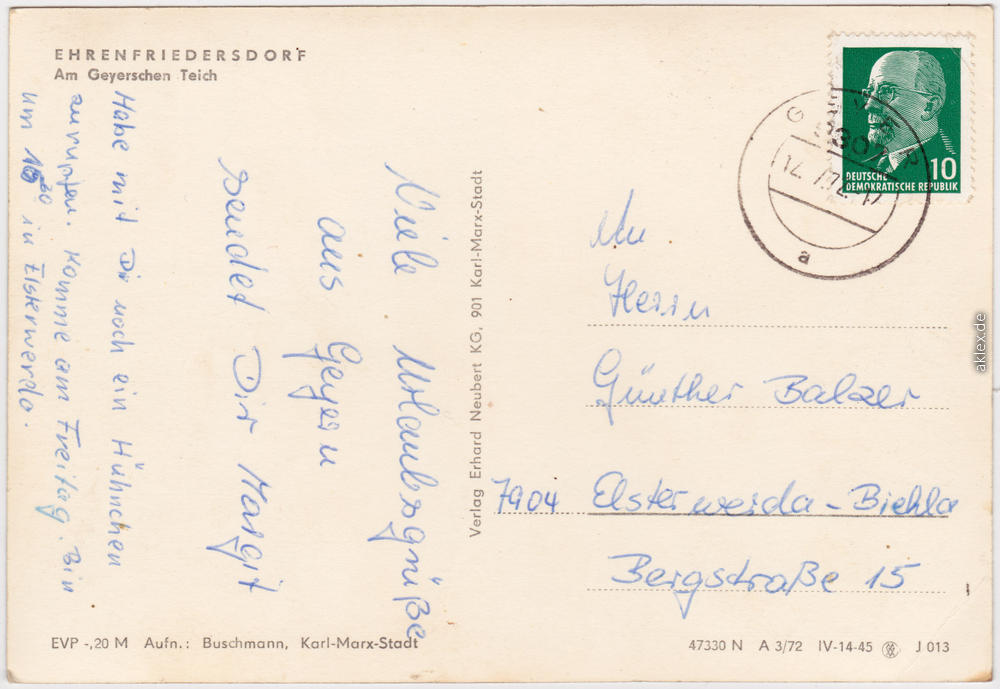 EHRENFRIEDERSDORF
Am Geyerschen Teich
Viele Urlaubsgrüße
aus
Geyern
sendet Dir Margit
Habe mit Dir noch ein Hühnchen
zu rupfen. Komme am Freitag. Bin
um 16 30 in Elsterwerda.
Verlag Erhard Neubert KG, 901 Karl-Marx-Stadt
GEYER
9302
12.7.72-17
a
10
DEUTSCHE
DEMOKRATISCHE REPUBLIK
An
Herrn
Günther Balzer
7904 Elsterwerda-Biehla
Bergstraße 15
EVP -,20 M Aufn.: Buschmann, Karl-Marx-Stadt
47330 N A 3/72 IV-14-45 J 013
aklex.de